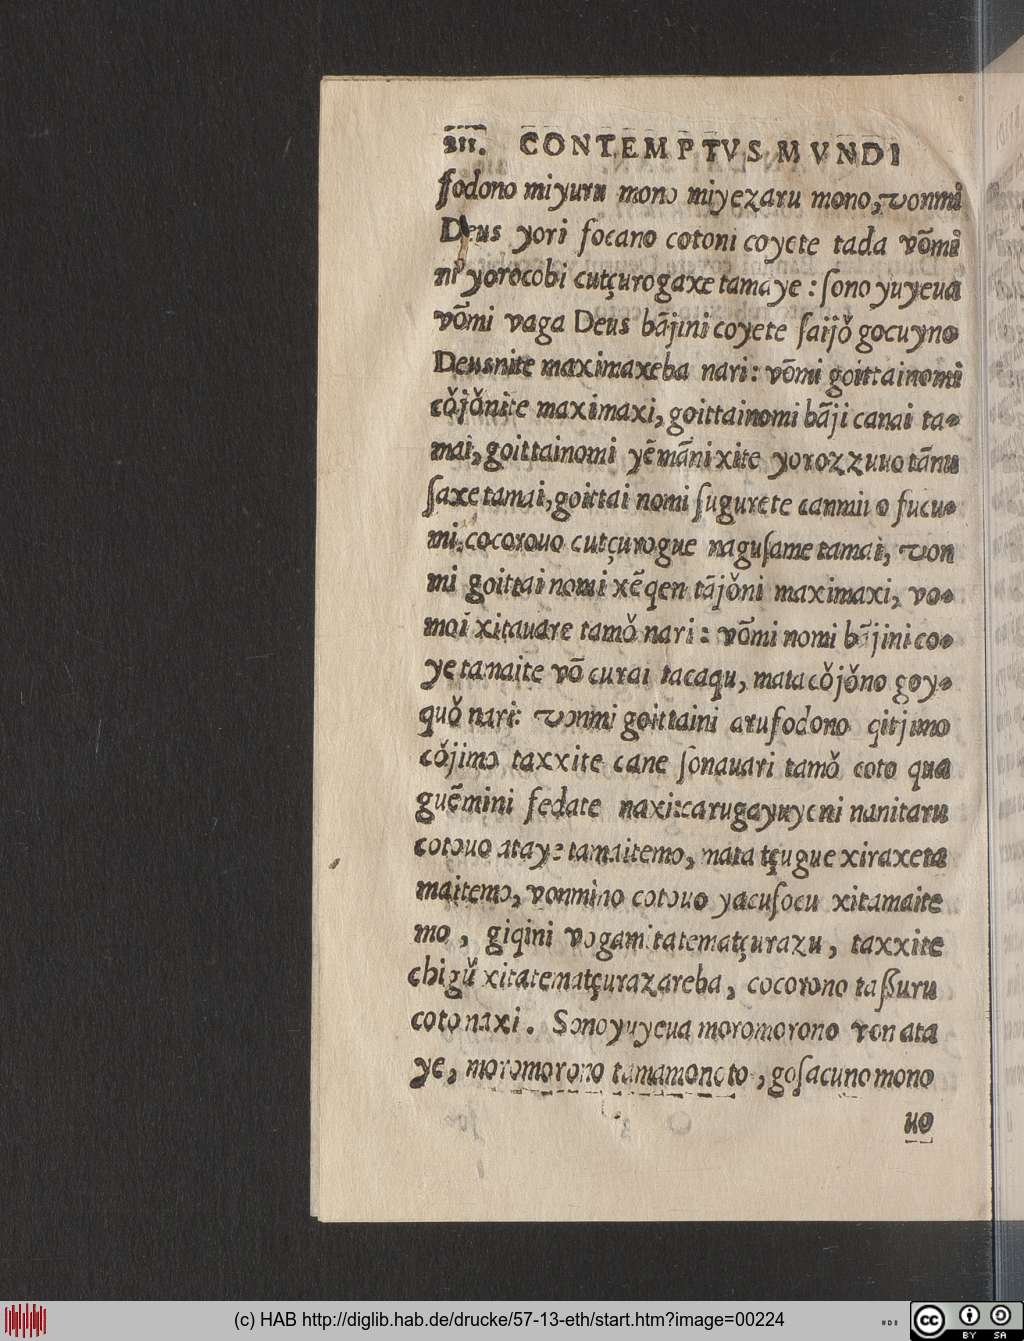 211. CONTEMPTVS MVNDI
ſodono miyuru mono miyezaru mono, vonmi
Deus yori focano cotoni coyete tada võmi
ni yorocobi cutçurogaxe tamaye: ſono yuyeua
võmi vaga Deus bãjini coyete ſaijǒ gocuyno
Deusnite maximaxeba nari: võmi goittainomi
cǒjǒnite maximaxi, goittainomi bãji canai ta-
mai, goittainomi yẽmãni xite yorozzuuo tãnu
ſaxe tamai, goittai nomi ſugurete canmiio fucu-
mi, cocorouo cutçurogue naguſame tamai, von
mi goittai nomi xẽqen tãjǒni maximaxi, vo-
moi xitauare tamǒ nari: võmi nomi bãjini co-
ye tamaite võ curai tacaqu, mata cǒjǒno goy-
quǒ nari: vonmi goittaini arufodono qitjimo
cǒjimo taxxite cane ſonauari tamǒ coto qua
guẽmini fedate naxi: carugayuyeni nanitaru
cotouo ataye tamaitemo, mata tçugue xiraxeta
maitemo, vonmino cotouo yacuſocu xitamaite
mo, giqini vogamitatematçurazu, taxxite
chigŭ xitatematçurazareba, cocorono taſſuru
coto naxi. Sono yuyeua moromorono von ata
ye, moromorono tamamonoto, goſacuno mono
uo
(c) HAB http://diglib.hab.de/drucke/57-13-eth/start.htm?image=00224
cc BY SA